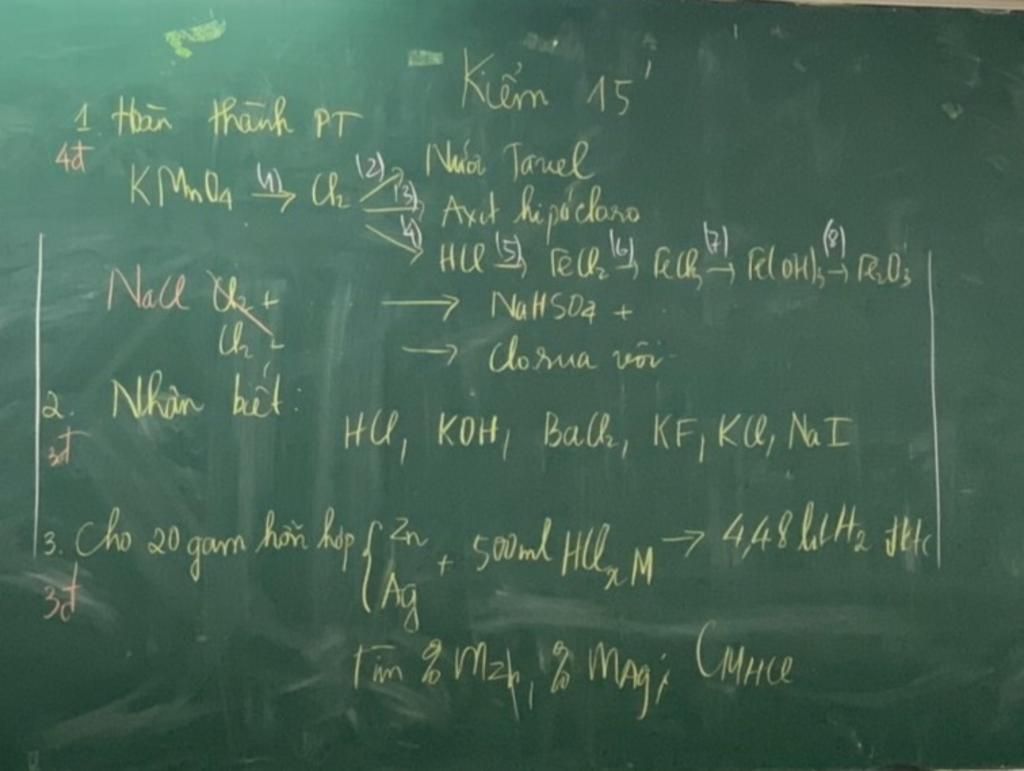 Kiểm 15'
1. Hoàn thành PT
4đ
KMnO4 (1)→ Cl2 (2)→ Nước Javel
(3)→ Axit hipôcloro
(4)→ HCl (5)→ FeCl2 (6)→ FeCl3 (7)→ Fe(OH)3 (8)→ Fe2O3
NaCl Cl2 + → NaHSO4 +
Cl2 → clorua vôi
2. Nhận biết:
3đ
HCl, KOH, BaCl2, KF, KCl, NaI
3. Cho 20 gam hỗn hợp { Zn
Ag + 500ml HCl xM → 4,48 lít H2 đktc
3đ
Tìm % mZn, % mAg; CMHCl